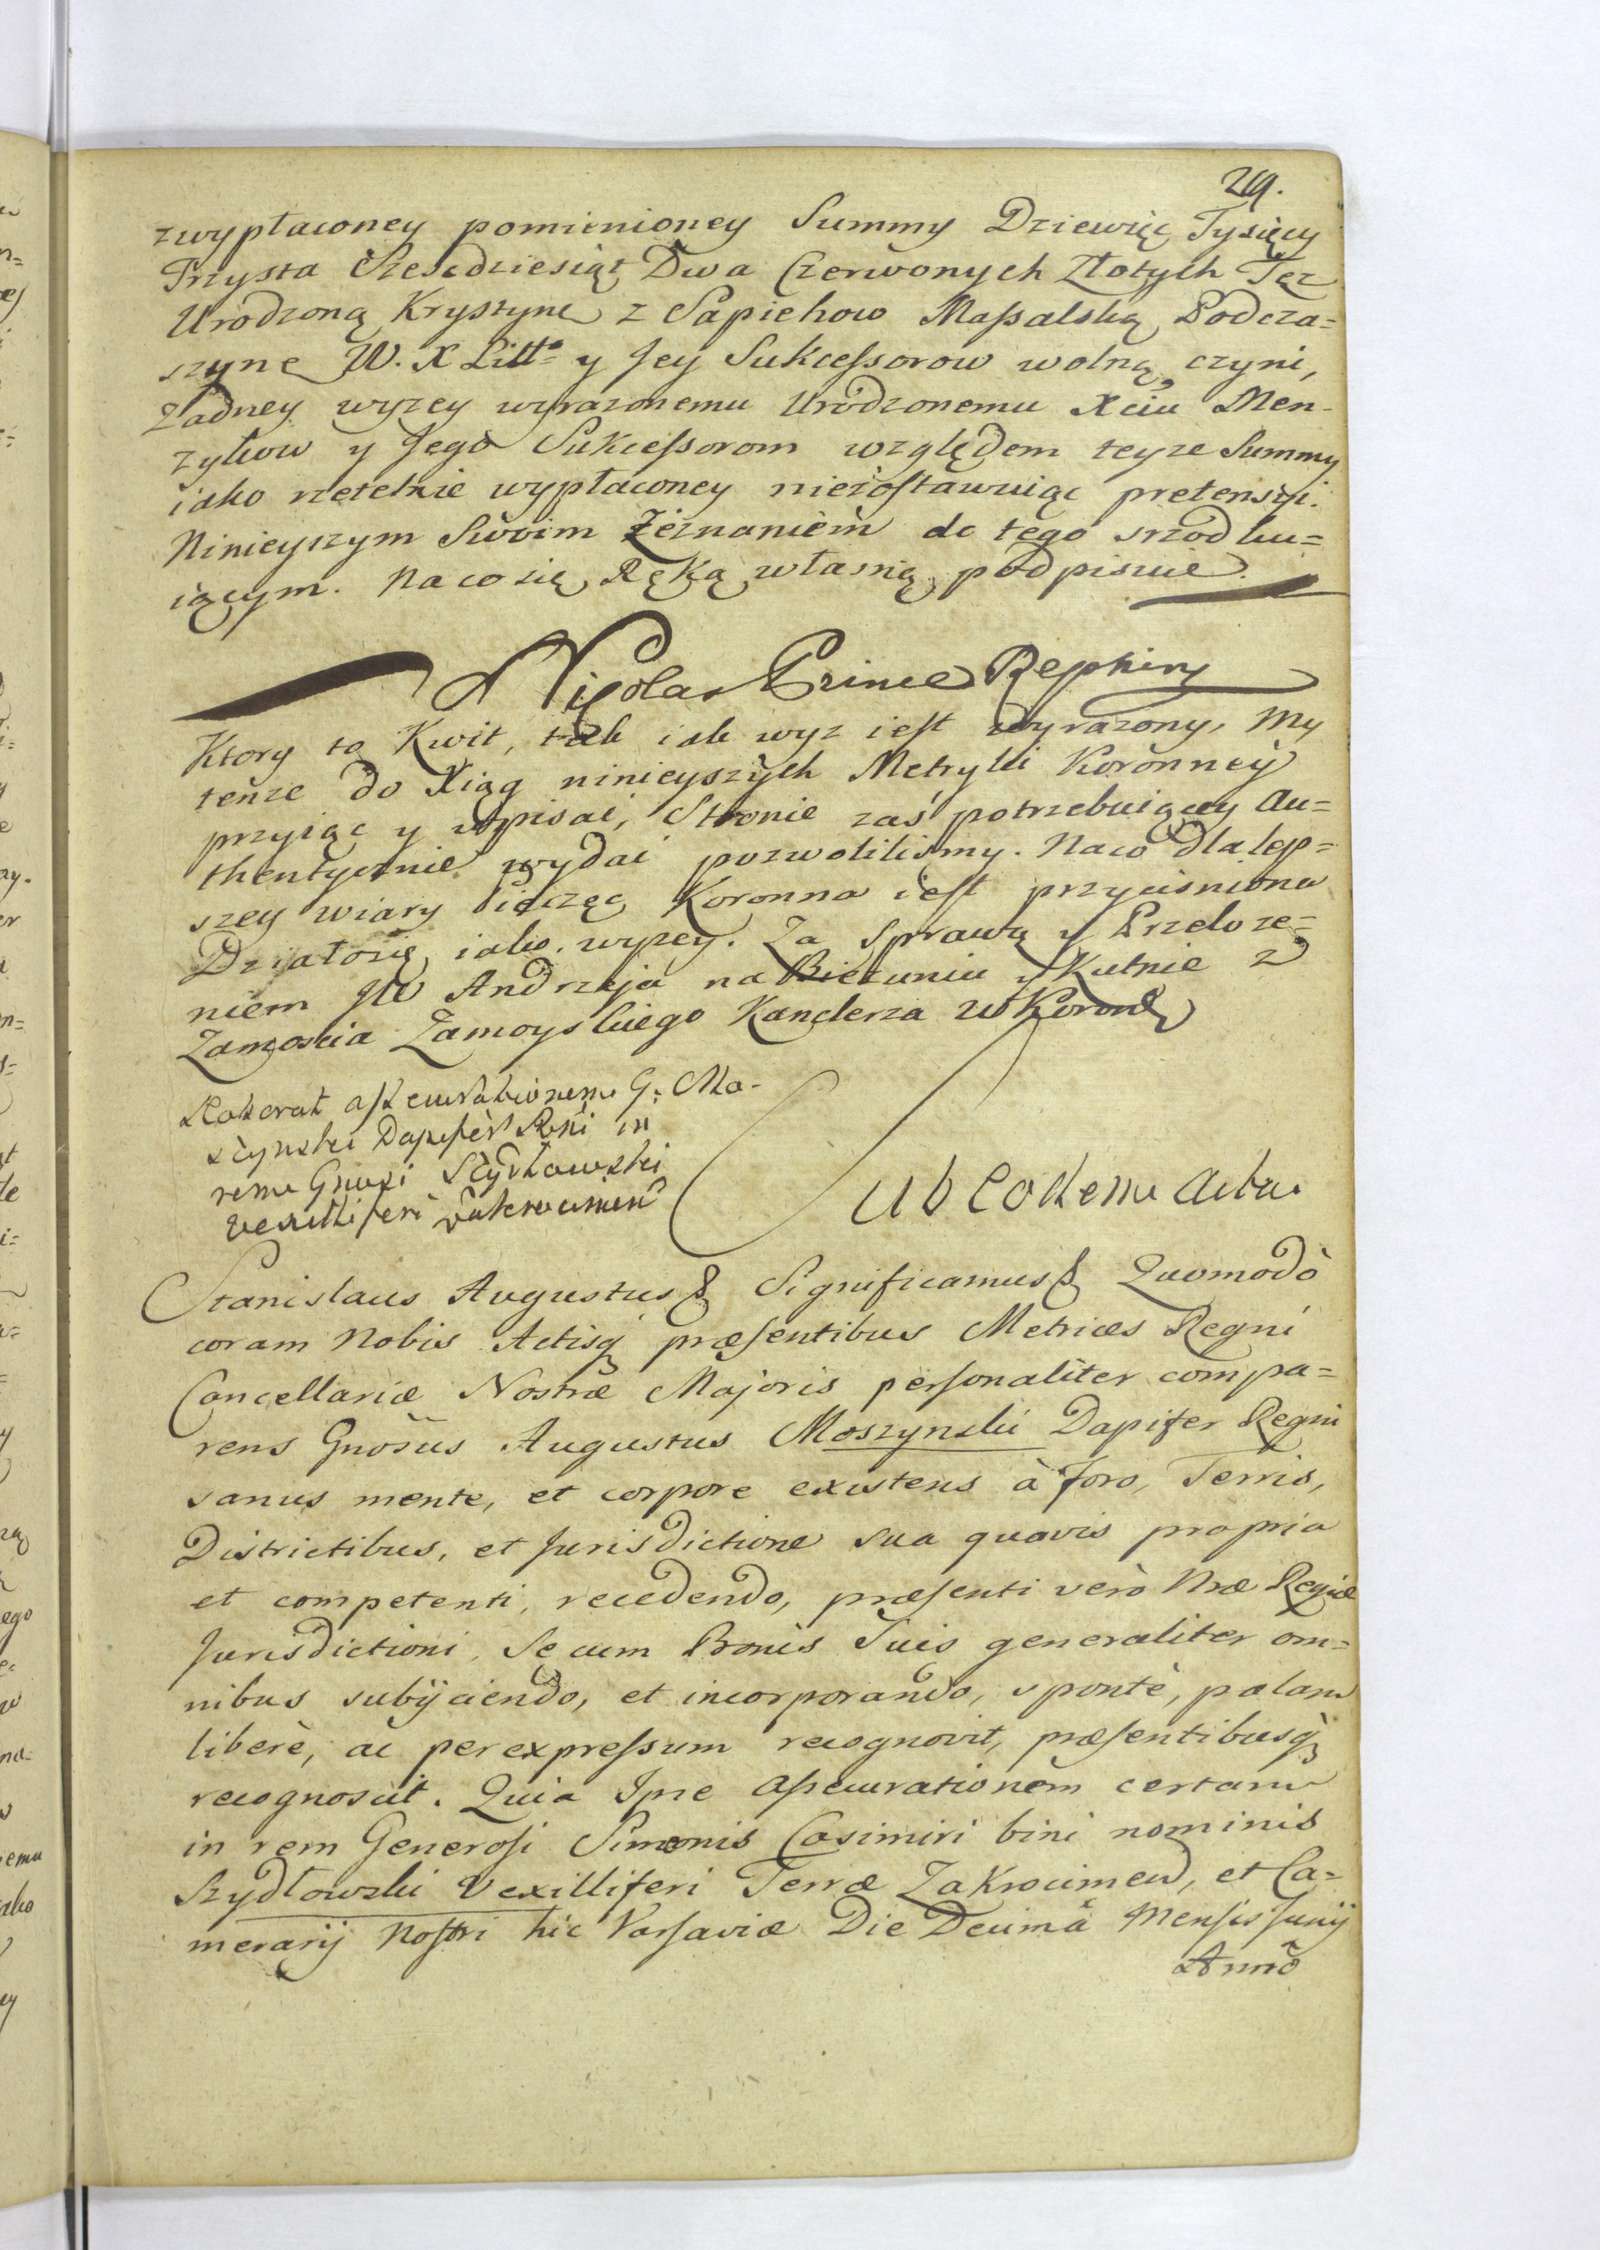 29.
z wypłaconey pomienioney Summy Dziewięc Tysięcy
Trzysta Szescdziesiąt Dwa Czerwonych Złotych Tęz
Urodzoną Krystynę z Sapiehow Maſsalską Podcza=
szynę W. X Litt° y Jey Sukceſsorow wolną czyni,
Zadney wyzey wyrazonemu Urodzonemu Xciu Men-
zykow y Jego Sukceſsorom względem teyze Summy
iako rzetelnie wypłaconey niezoſtawuiąc pretensyi.
Ninieyszym Swoim Zeznaniem do tego srzodku=
iącym. Na co się Ręką własną podpisuie.
Nicolas Prince Repnin
Ktory to Kwit, tak iak wyz ieſt wyrazony, My
tenze do Xiąg ninieyszych Metryki Koronney
przyiąc y wpisać, Stronie zaś potrzebuiącey Au=
thentycznie wydać pozwoliliśmy. Na co dla lep=
szey wiary Pieczęć Koronna ieſt przyciśniona
Działo się iako wyzey. Za Sprawą y Przełoze=
niem JW Andrzeja na Biezuniu y Kutnie z
Zamościa Zamoyskiego Kanclerza W Koronę
Roborat aſsecurationem G. Mo-
szynski Dapiferi Regni in
rem Gnosi Szydłowski
Vexilliferi Zakrocimen
Sub Eodem Actu.
Stanislaus Augustus & Significamus & Quomodò
coram Nobis Actisq præſentibus Metrices Regni
Cancellariæ Nostræ Majoris perſonaliter compa=
rens Gnosus Augustus Moszynski Dapifer Regni
sanus mente, et corpore existens à Foro, Terris,
Districtibus, et Jurisdictione sua quavis propria
et competenti, recedendo, præſenti verò Nræ Regiæ
Jurisdictioni Se cum Bonis Suis generaliter om=
nibus subijciendo, et incorporando, sponte, palam
liberè, ac per expreſsum recognovit, præſentibusq
recognoscit. Quia Ipse Aſsecurationem certam
in rem Generoſi Simonis Casimiri bini nominis
Szydłowski Vexilliferi Terræ Zakrocimen, et Ca=
merarij Noſtri hic Varſaviæ Die Decimâ Menſis Junij
Annô